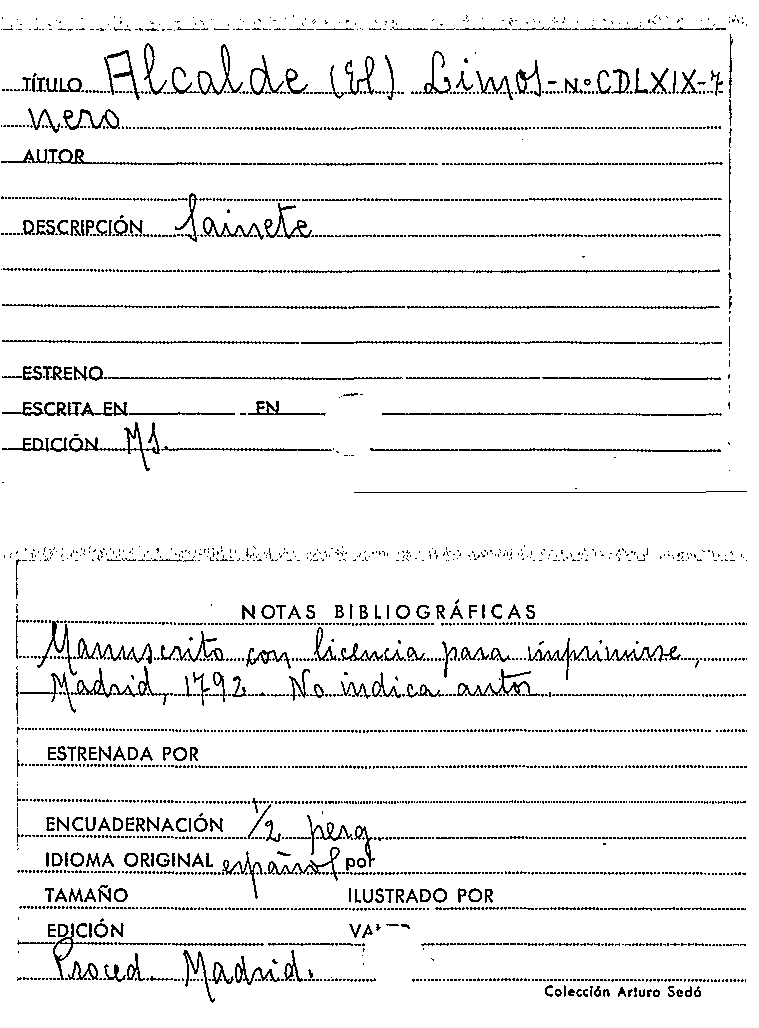 TÍTULO Alcalde (El) Limos- Nº CDLXIX-7
nero
AUTOR
DESCRIPCIÓN Sainete
ESTRENO
ESCRITA EN EN
EDICIÓN MS.
NOTAS BIBLIOGRÁFICAS
Manuscrito con licencia para imprimirse,
Madrid, 1792. No indica autor.
ESTRENADA POR
ENCUADERNACIÓN 1/2 perg
IDIOMA ORIGINAL español por
TAMAÑO ILUSTRADO POR
EDICIÓN
Proced. Madrid.
Colección Arturo Sedó